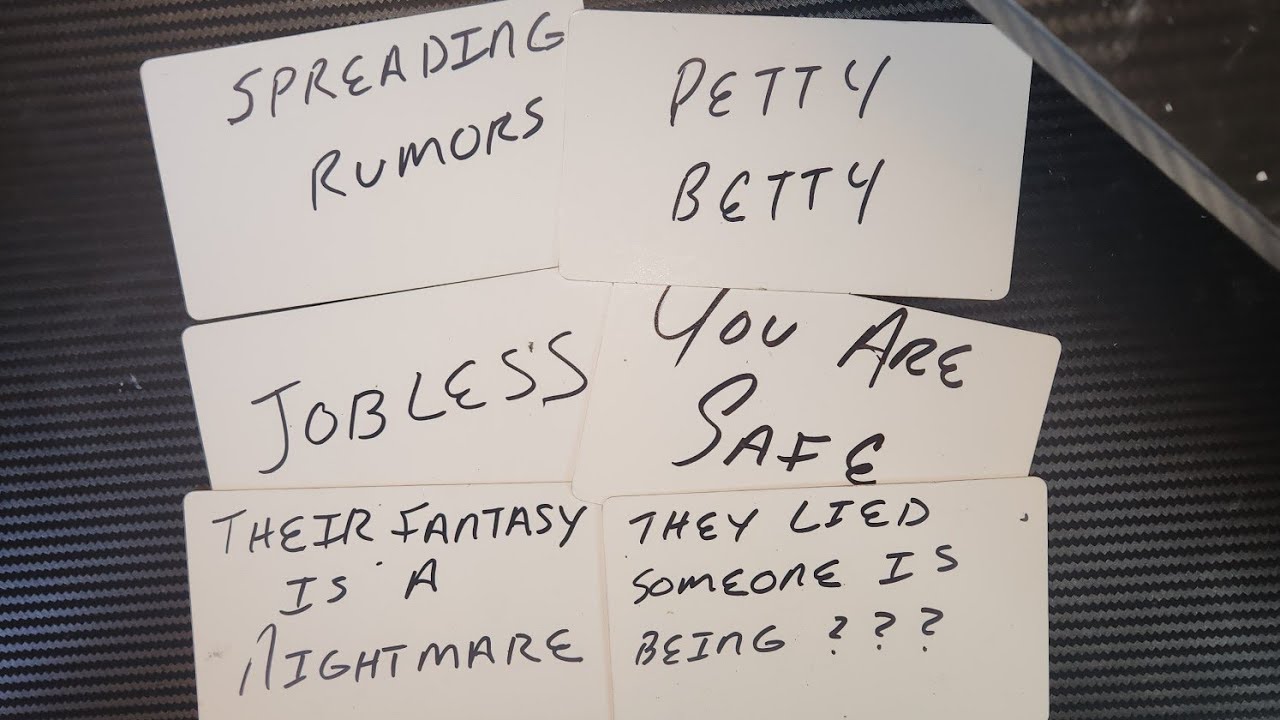 SPREADING
RUMORS
PETTY
BETTY
JOBLESS
YOU ARE
SAFE
THEIR FANTASY
IS A
NIGHTMARE
THEY LIED
SOMEONE IS
BEING ? ? ?